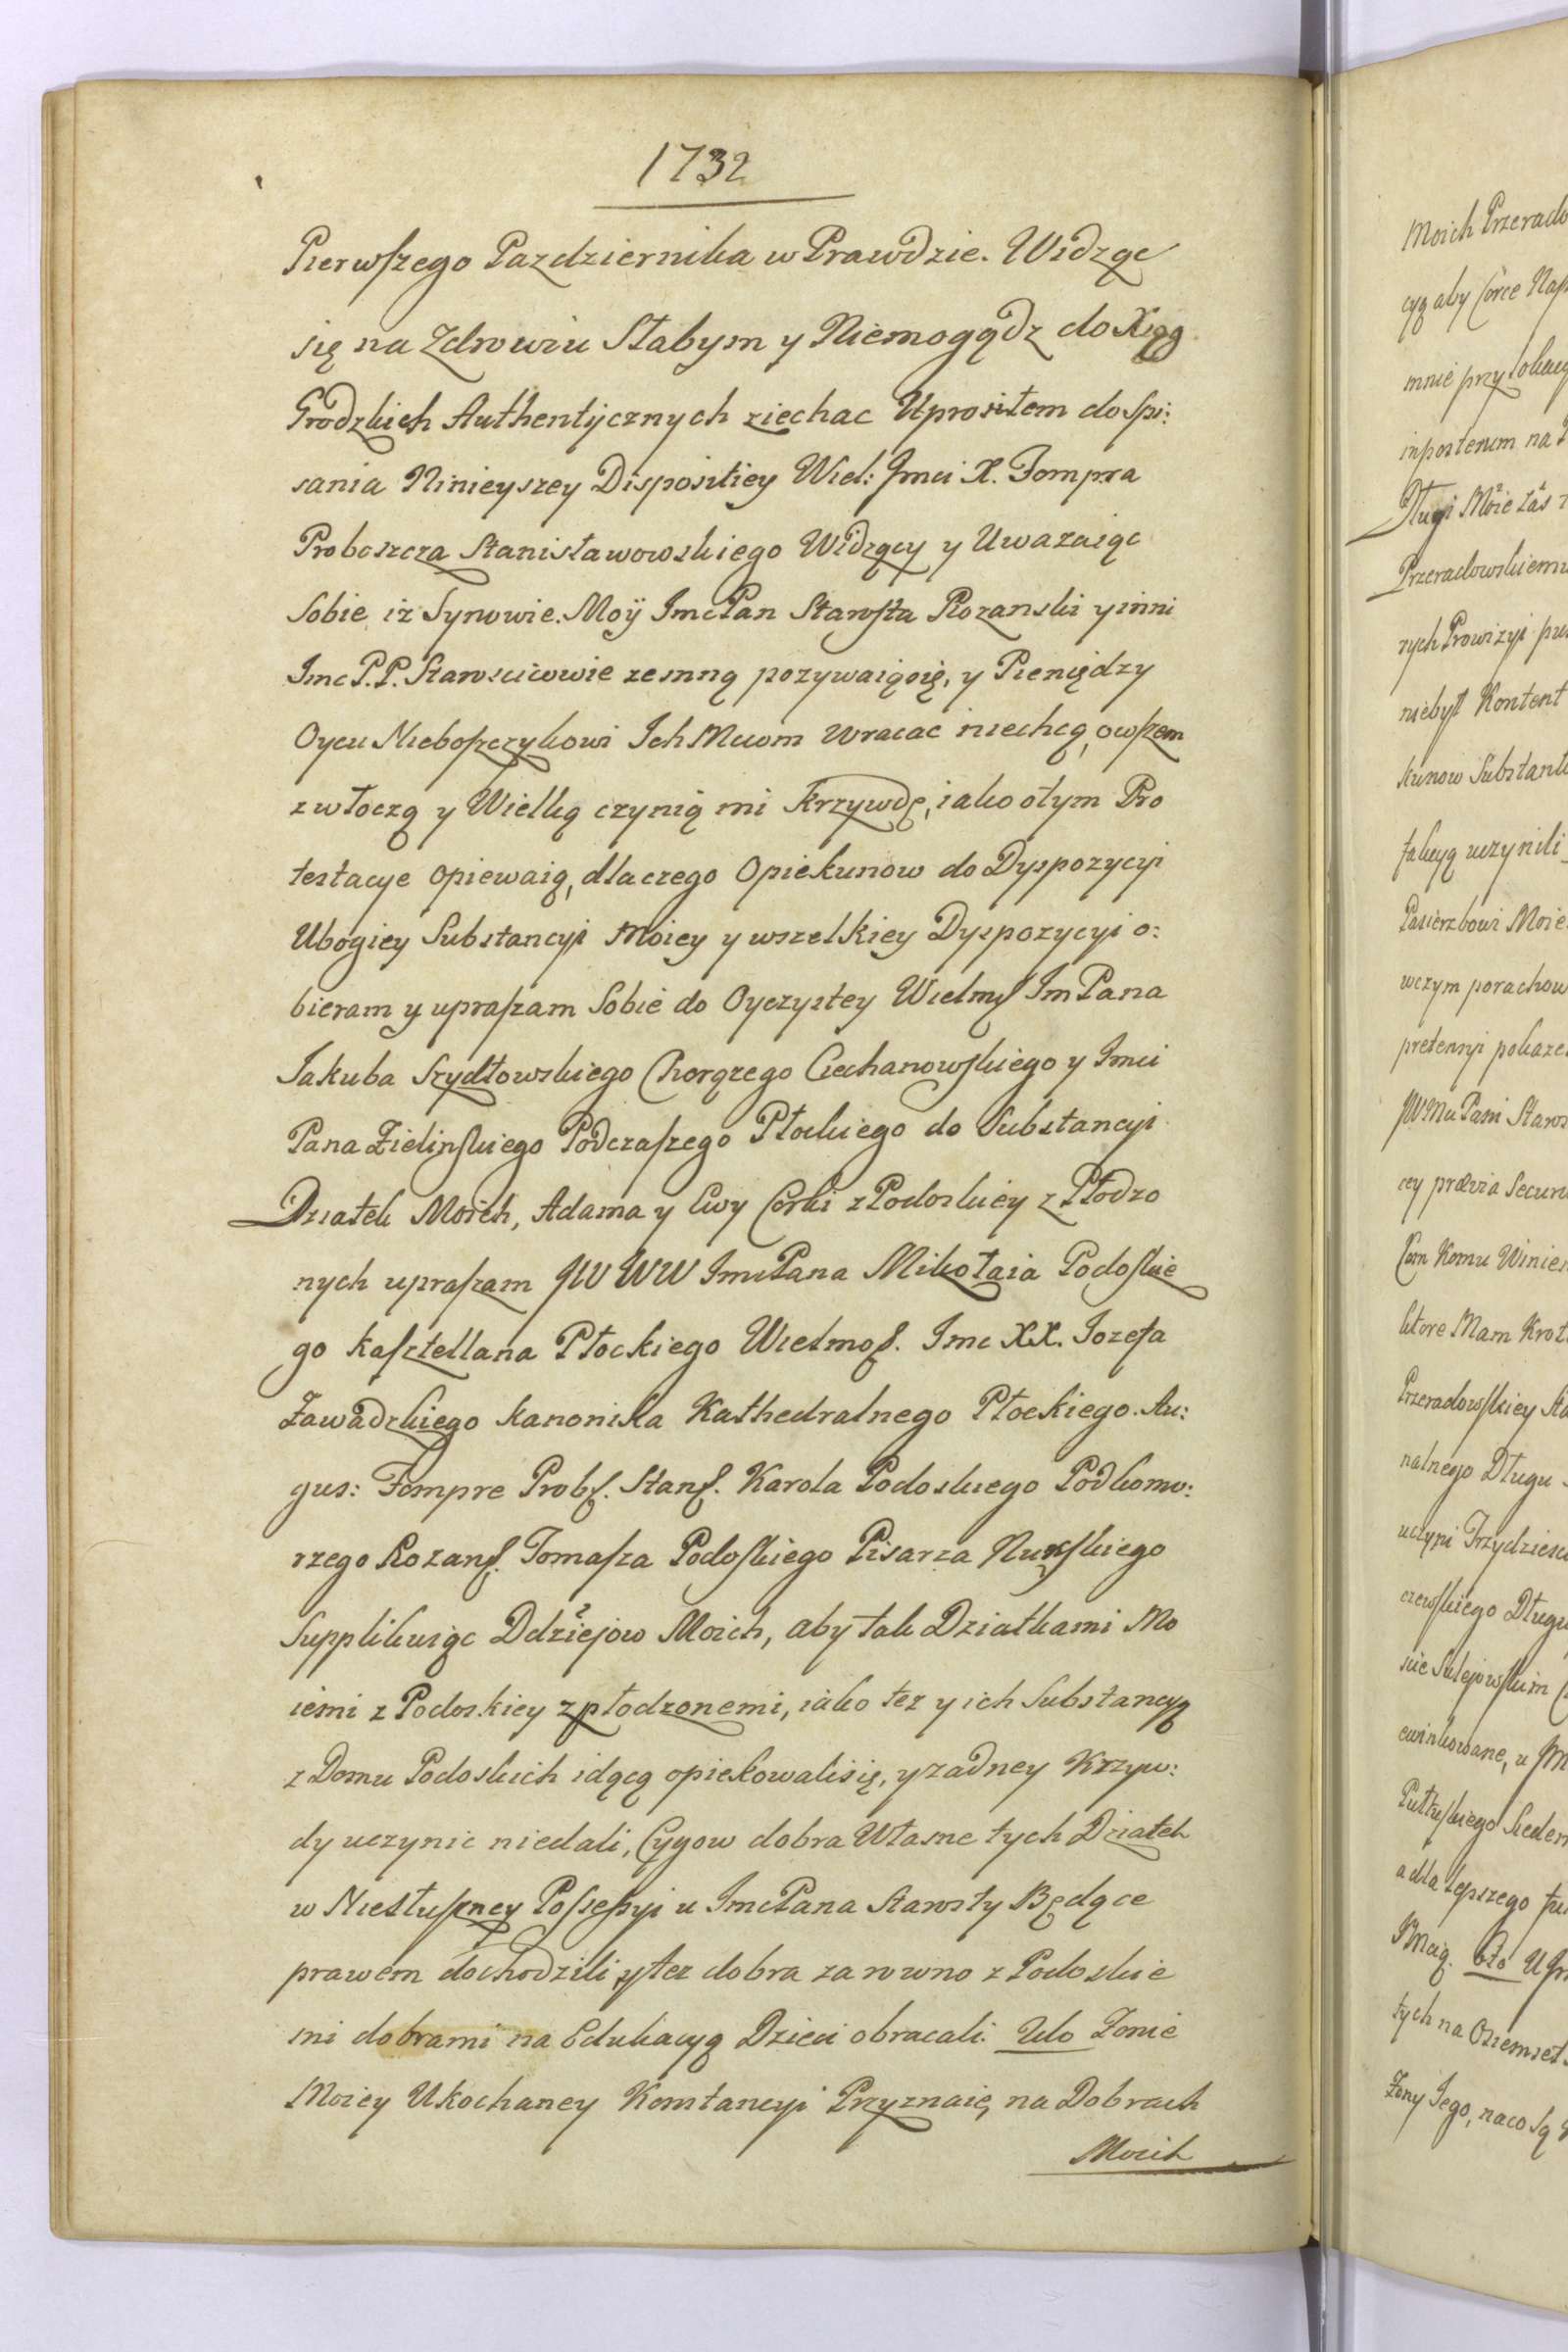 1732
Pierwszego Pazdziernika w Prawdzie. Widząc
się na Zdrowiu Słabym y Niemogądz do Xiąg
Grodzkich Authentycznych ziechac Uprosiłem do Spi:
sania Ninieyszey Dispositiey Wiel: Jmci X. Fompra
Proboszcza Stanisławowskiego Widzący y Uwazaiąc
Sobie iż Synowie Moÿ ImcPan Starosta Rozanski y inni
Imc P.P. Starościcowie zemną pozywaiąsię, y Pieniędzy
Oycu Nieboszczykowi Ich Mciom wracac niechcą, owszem
zwłoczą y Wielką czynią mi Krzywdę, iako otym Pro
testacye opiewaią, dlaczego Opiekunow do Dyspozycyi
Ubogiey Substancyi Moiey y wszelkiey Dyspozycyi o:
bieram y upraszam Sobie do Oyczystey Wielmſ ImPana
Jakuba Szydłowskiego Chorązego Ciechanowskiego y Jmci
Pana Zielinskiego Podczaszego Płockiego do Substancyi
Dziatek Moich, Adama y Ewy Corki z Podoskiey z Płodzo
nych upraszam JW WW ImcPana Mikołaia Podoskie
go Kasztellana Płockiego Wielmoſ. Imc XX. Iozefa
Zawadzkiego Kanonika Kathedralnego Płockiego. Au:
gus: Fompre Probſ. Stanſ. Karola Podoskiego Podkomo:
rzego Rozanſ. Tomasza Podoskiego Pisarza Nurskiego
Supplikuiąc Ddziejow Moich, aby tak Dziatkami Mo
iemi z Podoskiey zpłodzonemi, iako tez y ich Substancyą
z Domu Podoskich idącą opiekowalisię, y zadney Krzyw:
dy uczynic niedali, Cygow dobra Własne tych Dziatek
w Niesłuszney Possessyi u ImcPana Starosty Będące
prawem dochodzili y tez dobra zarowno z Podoskie
mi dobrami na Edukacyą Dzieci obracali. 2do Zonie
Moiey Ukochaney Konstancyi Przyznaię, na Dobrach
Moich
Moich Przerado
cyą aby Córce Naſ
mnie przy
na
Długi Moie zaś
Przeradowskiemu
rych Prowizyi
niebył Kontent
kunow Substant
uczynili
Pasierzbowi Moie
wczym porachow
pretensyi pokaze
Pani Staros
cey prævia Secur
Komu Winien
ktore Mam Krot
Przeradowskiey Sta
nalnego Długu
uczyni Trzydziesci
czewskiego Długu
ewinkowane, u
Pułtuskiego Siedem
a dla lepszego
6to
tych na Osiemset
Zony Jego, naco Są